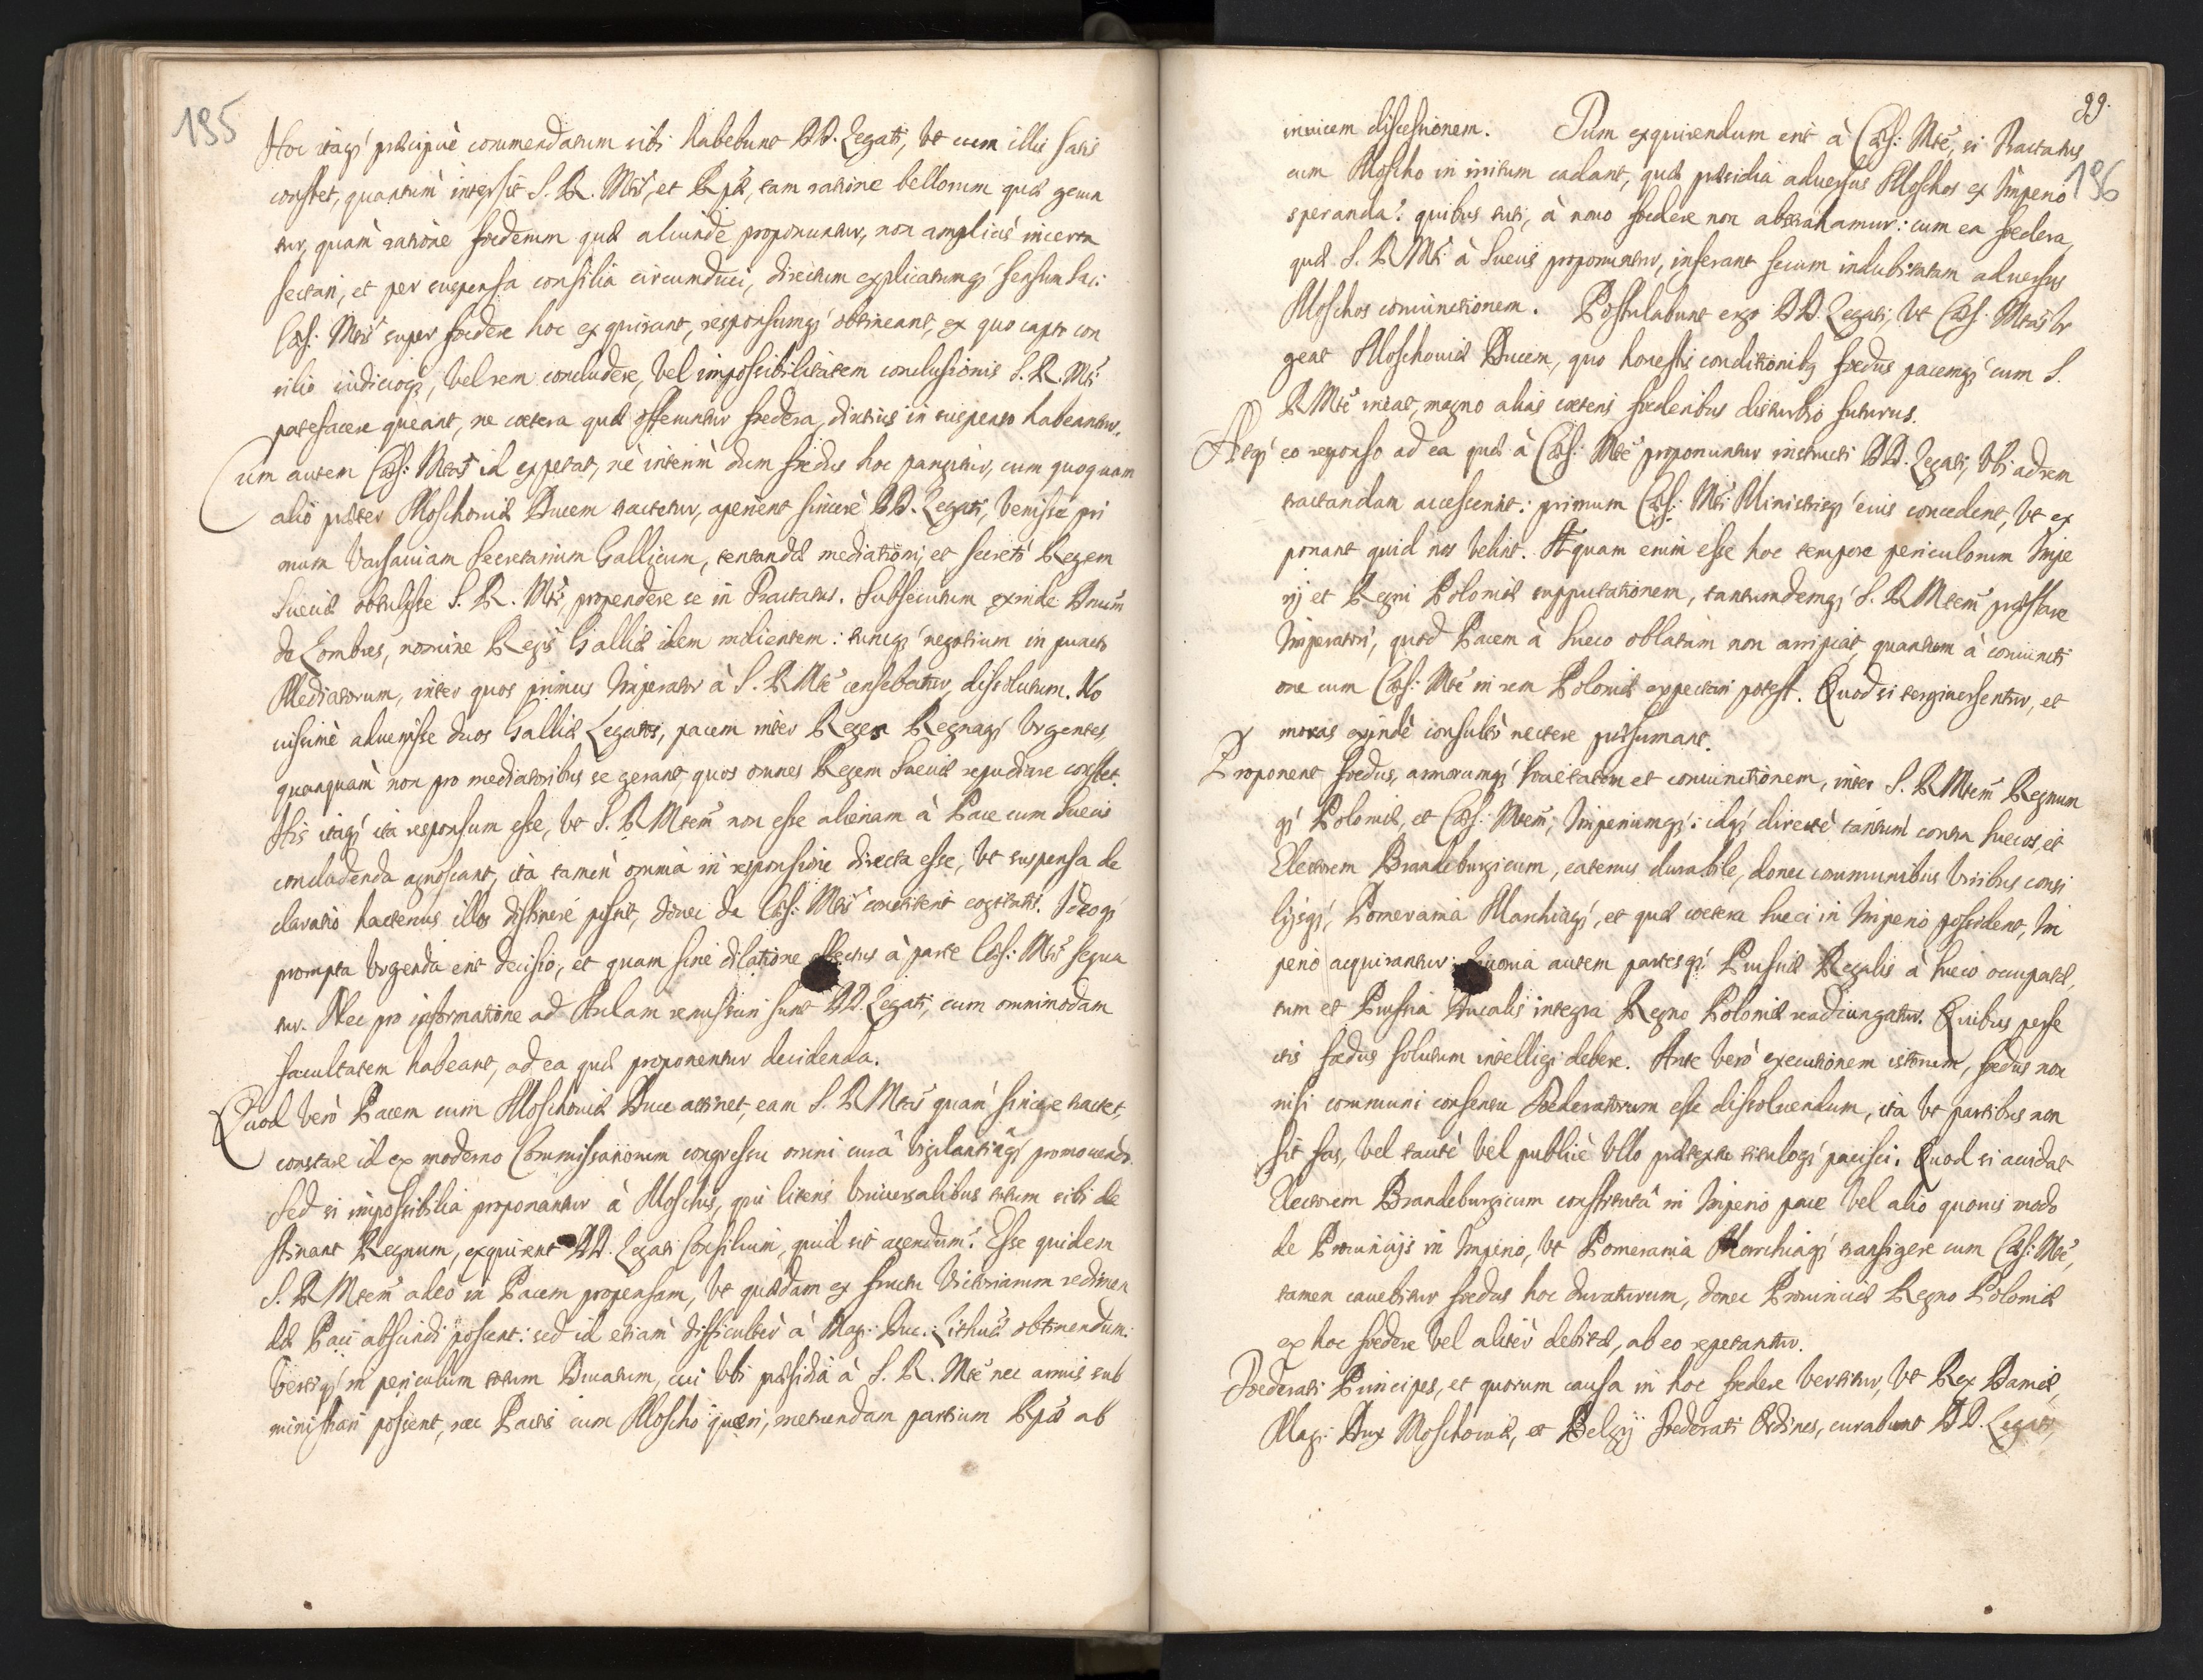 195
Hoc itaq́ præcipuè commendatum sibi habebunt DD. Legati, vt cum illis satis
constet, quantum intersit S. R. Mtis, et Rpæ, tam ratione bellorum quæ gerun
tur, quàm ratione fœderum quæ aliunde proponuntur, non ampliùs incerta
sectari, et per suspensa consilia circumduci, directum explicatumq́ sensum Sac:
Cæs: Mtis super fœdere hoc exquirant, responsumq́ obtineant, ex quo capto con
silio iudicioq́, vel rem concludere, vel impossibilitatem conclusionis S. R. Mti
patefacere queant, ne cœtera quæ offeruntur fœdera, diutius in suspenso habeantur.
Cum autem Cæs: Mtas id expetat, nè interim dum fœdus hoc pangitur, cum quoquam
alio præter Moschouiæ Ducem tractetur, aperient sincerè DD. Legati, venisse pri
mum Varsauiam Secretarium Gallicum, tentandæ mediationi, et secretò Regem
Sueciæ obtulisse S. R. Mti, propendere se in Tractatus. Subsecutum exinde Dnum
de Lombres, nomine Regis Galliæ idem molientem: tuncq́ negotium in puncto
Mediatorum, inter quos primus Imperator à S. R Mte censebatur, dissolutum. No
uissimè aduenisse duos Galliæ Legatos, pacem inter Reges Regnaq́ vrgentes,
quanquàm non pro mediatoribus se gerant, quos omnes Regem Sueciæ repudiare constet.
His itaq́ ita responsum esse, vt S. R Mtem non esse alienam à Pace cum Suecis
concludenda agnoscant, ità tamen omnia in responsione directa esse, vt suspensa de
claratio hactenus illos distinere possit, donec de Cæs: Mtis constiterit cogitatis. Ideoq́
prompta vrgenda erit decisio, et quam sine dilatione effectus à parte Cæs: Mtis sequa
tur. Nec pro informatione ad Aulam remissuri sunt DD. Legati, cum omnimodam
facultatem habeant, ad ea quæ proponentur decidenda.
Quod verò Pacem cum Moschouiæ Duce attinet, eam S. R Mtas quàm sincerè tractet,
constare id ex moderno Commissariorum congressu omni curâ vigilantiâq́ promouendo.
Sed si impossibilia proponantur à Moschis, qui literis vniuersalibus totum sibi de
stinant Regnum, exquirent DD. Legati Consilium, quid sit agendum? Esse quidem
S. R Mtem adeò in Pacem propensam, vt quædam ex fructu victoriarum redimen
dæ Paci abscindi possent: sed id etiam difficultèr à Mag: Duc: Lithuæ obtinendum:
vertiq́ in periculum totum Ducatum, cui vbi præsidia à S. R. Mte nec armis sub
ministrari possent, nec Pacis cum Moscho quæri, metuendam partium Rpæ ab
99.
196
inuicem discessionem. Tum exquirendum erit à Cæs: Mte, si Tractatus
cum Moscho in irritum cadant, quæ præsidia aduersus Moschos ex Imperio
speranda? quibus tuti, à nouo fœdere non abstrahamur: cum ea fœdera,
quæ S. R Mti à Suecis proponuntur, inferant secum indubitatam aduersus
Moschos coniunctionem. Postulabunt ergo DD. Legati, vt Cæs: Mtas vr
geat Moschouiæ Ducem, quo honestis conditionibꝫ fœdus pacemq́ cum S.
R Mte ineat, magno alias cœteris fœderibus disturbio futurus.
Atq́ eo responso ad ea quæ à Cæs: Mte proponuntur instructi DD. Legati, vbi ad rem
tractandam accesserint: primum Cæs: Mti Ministrisq́ eius concedent, vt ex
ponant quid nos velint. Æquam enim esse hoc tempore periculorum Impe
rij et Regni Poloniæ supputationem, tantumdemq́ S. R Mtem præstare
Imperatori, quod Pacem à Sueco oblatam non arripiat, quantum à coniuncti
one cum Cæs: Mte in rem Poloniæ expectari potest. Quod si tergiuersentur, et
moras exindè consultò nectere præsumant.
Proponent fœdus, armorumq́ societatem et coniunctionem, inter S. R Mtem Regnum
q́ Poloniæ, et Cæs: Mtem, Imperiumq́: idq́ directè tantùm contra Suecos, et
Electorem Brandeburgicum, eatenus durabile, donec communibus viribus consi
lijsq́, Pomerania Marchiaq́, et quæ cœtera Sueci in Imperio possident, Im
perio acquirantur: Liuonia autem partesq́ Prussiæ Regalis à Sueco occupatæ,
tum et Prussia Ducalis integra Regno Poloniæ readiungatur. Quibus perfe
ctis fœdus solutum intelligi debere. Ante verò executionem istorum, fœdus non
nisi communi consensu Fœderatorum esse dissoluendum, ita vt partibus non
sit fas, vel tacitè vel publicè vllo prætextu tituloq́ pacisci. Quod si accidat
Electorem Brandeburgicum constitutâ in Imperio pace vel alio quouis modo
de Prouincijs in Imperio, vt Pomerania Marchiaq́ transigere cum Cæs: Mte,
tamen cauebitur fœdus hoc duraturum, donec Prouinciæ Regno Poloniæ
ex hoc fœdere vel alitèr debitæ, ab eo repetantur.
Fœderati Principes, et quorum causa in hoc fœdere vertitur, vt Rex Daniæ,
Mag: Dux Moschouiæ, et Belgij Fœderati Ordines, curabunt DD. Legati,